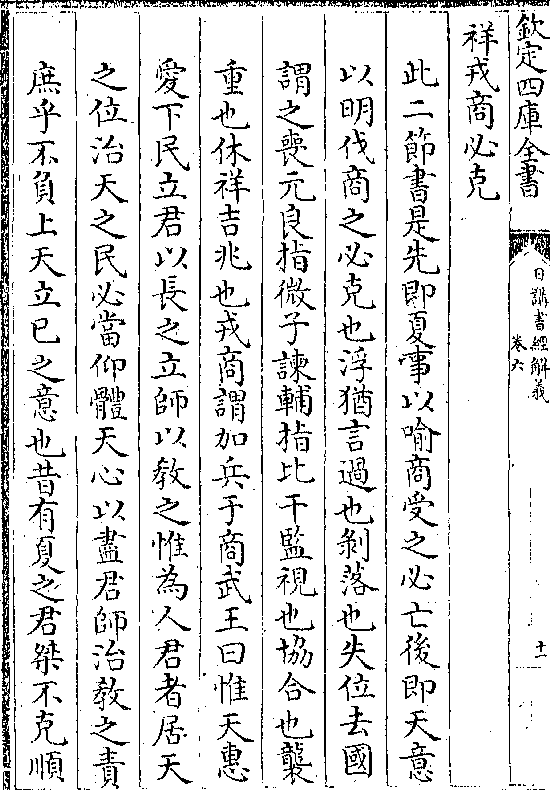 欽定四庫全書
日講書經解義
卷六
十一
祥戎商必克
此二節書是先即夏事以喻商受之必亡後即天意
以明伐商之必克也浮猶言過也剝落也失位去國
謂之喪元良指微子諫輔指比干監視也協合也襲
重也休祥吉兆也戎商謂加兵于商武王曰惟天惠
愛下民立君以長之立師以教之惟為人君者居天
之位治天之民必當仰體天心以盡君師治教之責
庶乎不負上天立已之意也昔有夏之君桀不克順